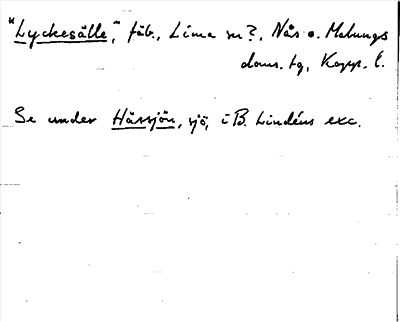 "Lyckesätte", fäb., Lima sn?, Nås o. Malungs
doms. tg, Kopp. l.
Se under Hässjön, sjö, i B. Lindéns exc.